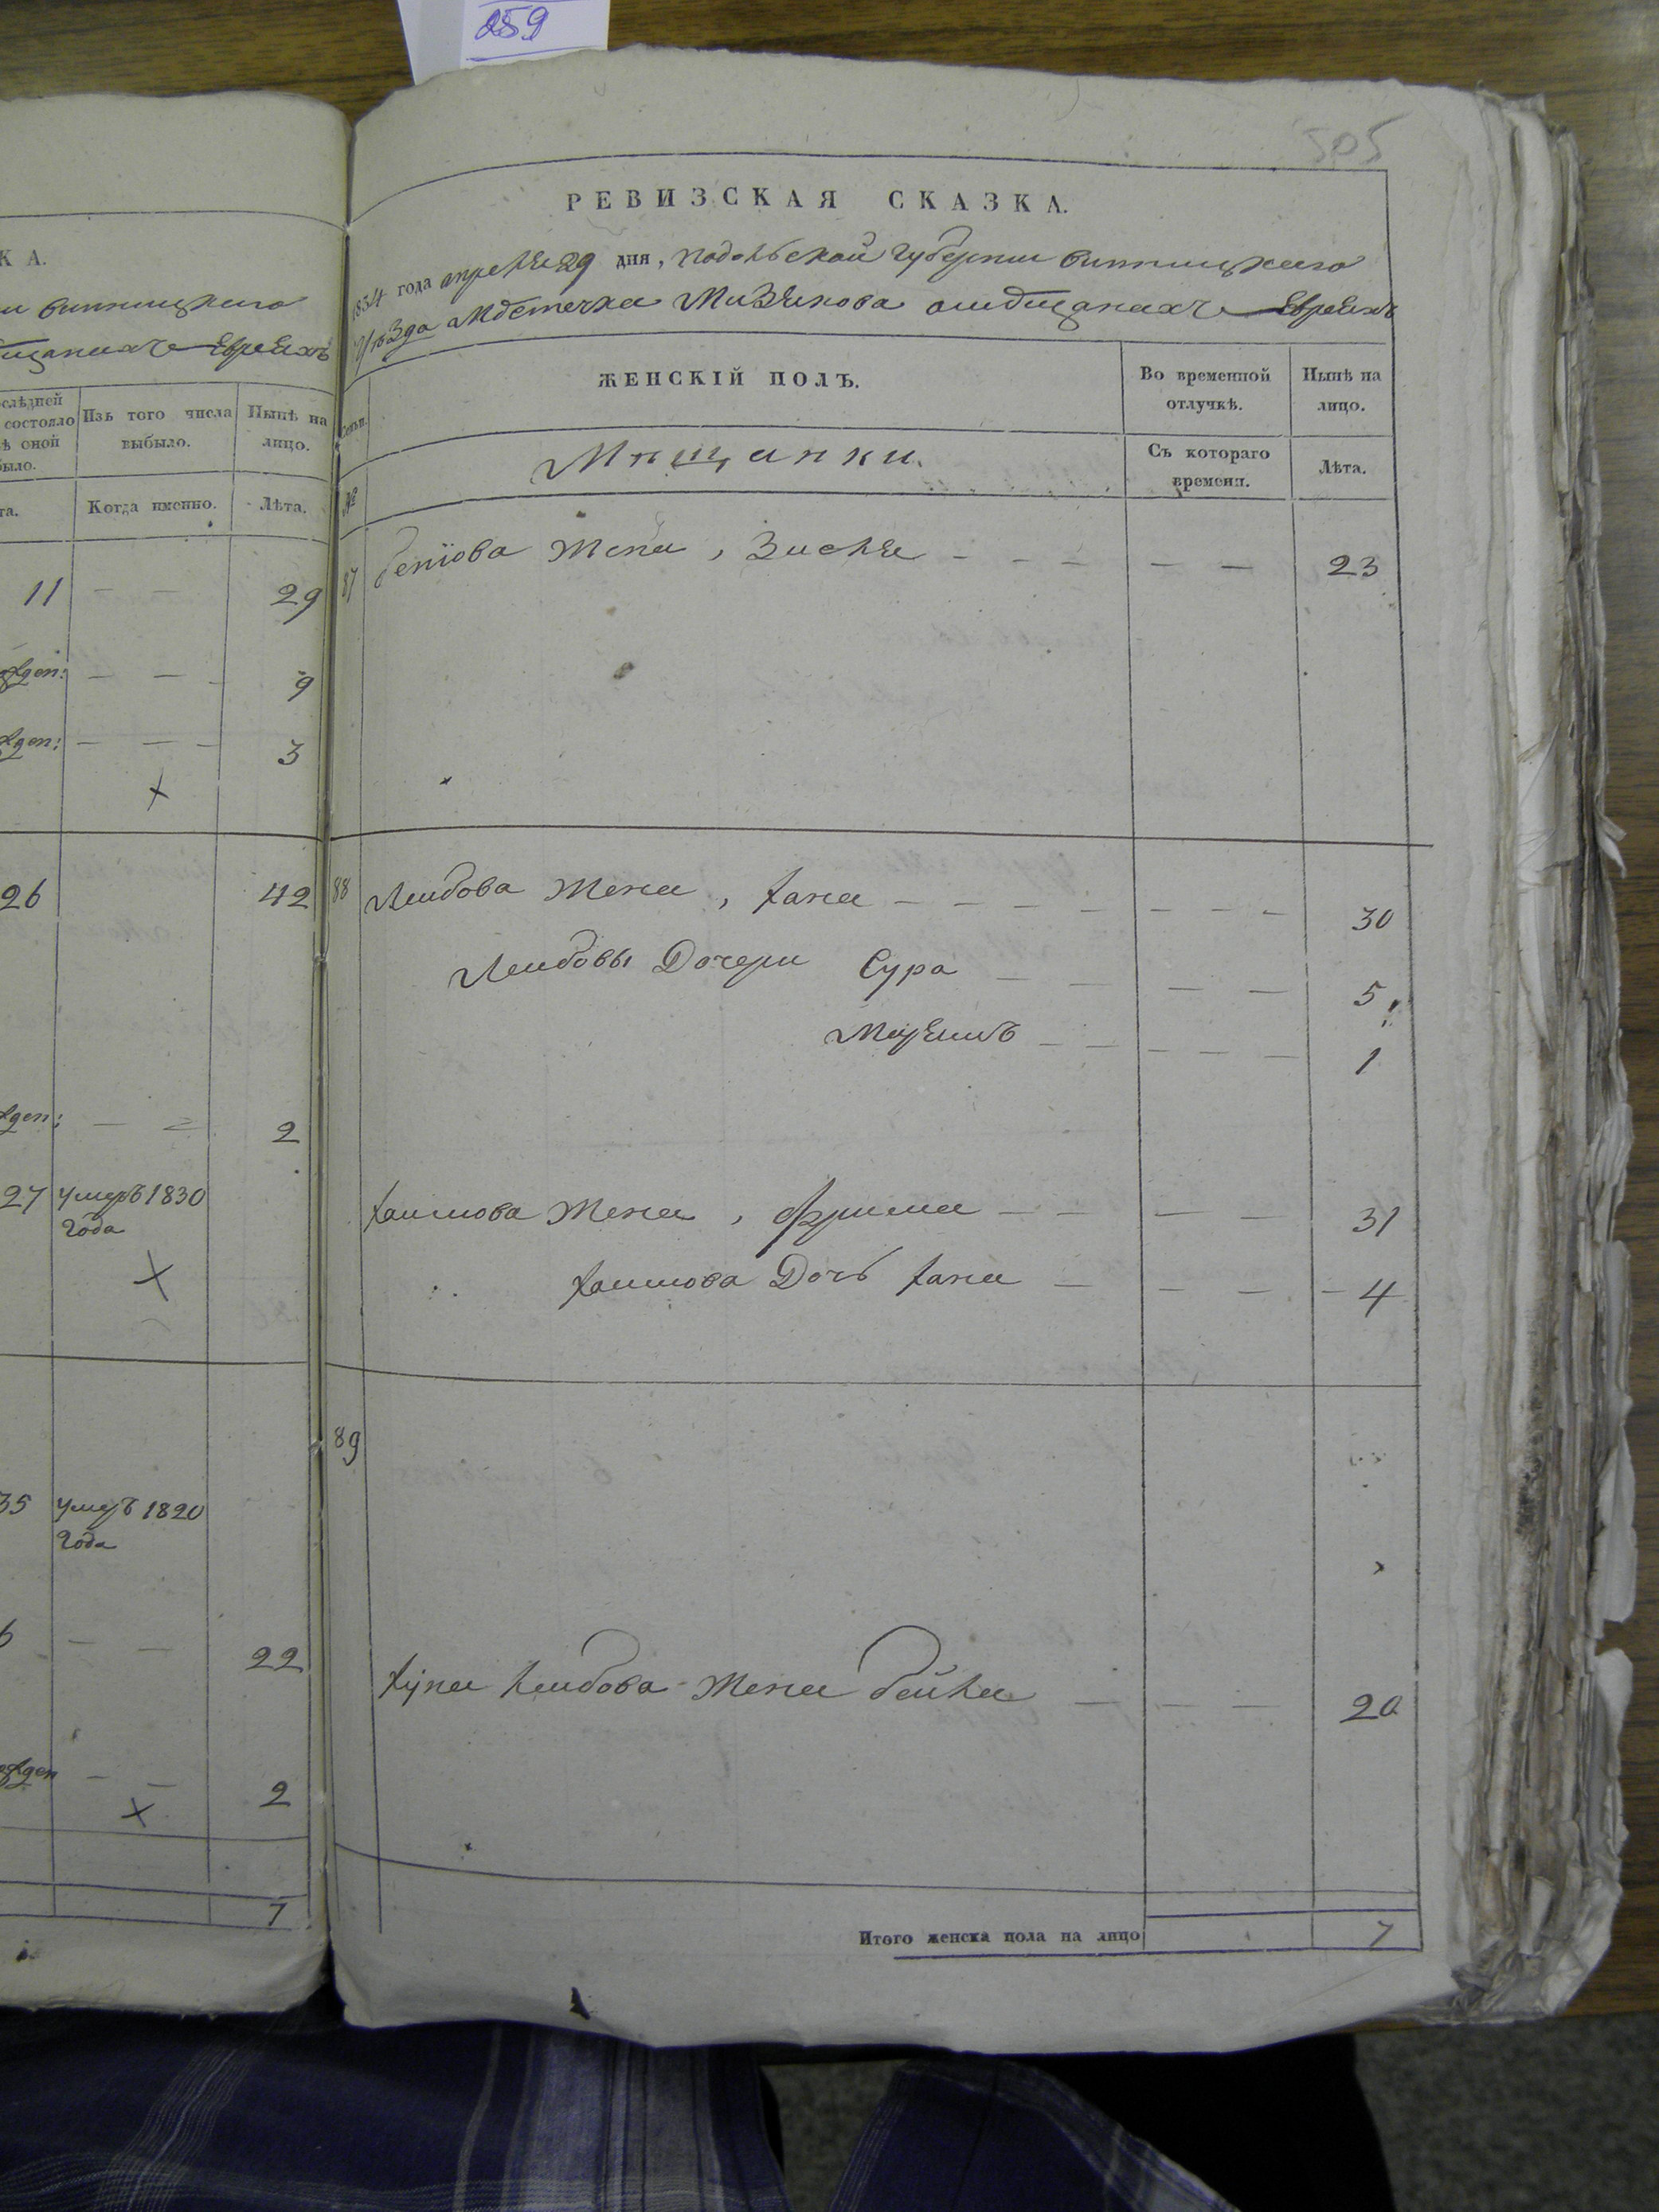 259
505
КА.
и Винницкаго
щанахъ Евреяхъ
ослѣдней
состояло
ѣ оной
было.
Изъ того числа
выбыло.
Нынѣ на
лицо.
та.
Когда именно.
Лѣта.
11 — — 29
жден: — — — 9
жден: — — — 3
26 42
жден: — — 2
27 умеръ 1830
года
35 умеръ 1820
года
6 — — 22
жден — — 2
7
РЕВИЗСКАЯ СКАЗКА.
1834 года апреля 29 дня, Подольской Губернии Винницкаго
уѣзда Мѣстечка Мизякова омѣщанахъ Евреяхъ
№
Семьи.
ЖЕНСКІЙ ПОЛЪ.
Во временной
отлучкѣ.
Нынѣ на
лицо.
Мѣщанки.
Съ котораго
времени.
Лѣта.
87 Беніова жена, Зисля — — — — — 23
88 Леибова жена, Хана — — — — — — — 30
Леибовы Дочери Сура — — — — 5
1
Хаимова жена, Фрима — — — — 31
Хаимова Дочь Хана — — — — 4
89
Леибова жена Бейла — — — 20
Итого женска пола на лицо 7